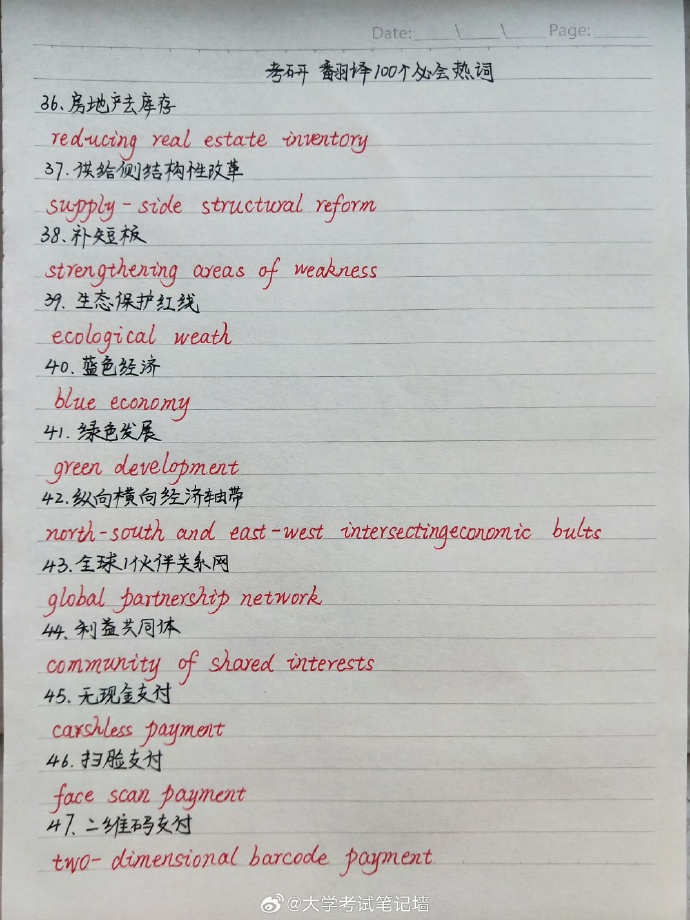 Date: \ \ Page:
考研 翻译100个必会热词
36、房地产去库存
reducing real estate inventory
37、供给侧结构性改革
supply-side structural reform
38、补短板
strengthening areas of weakness
39、生态保护红线
ecological weath
40、蓝色经济
blue economy
41、绿色发展
green development
42、纵向横向经济轴带
north-south and east-west intersectingeconomic bults
43、全球伙伴关系网
global partnership network
44、利益共同体
community of shared interests
45、无现金支付
carshless payment
46、扫脸支付
face scan payment
47、二维码支付
two-dimensional barcode payment
@大学考试笔记墙